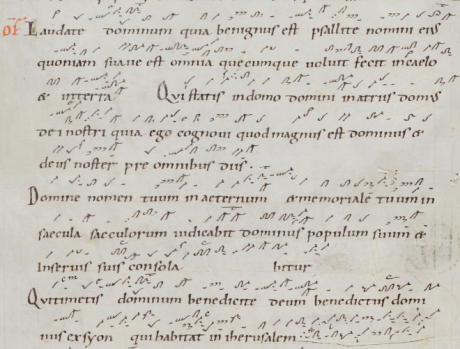 OF Laudate dominum quia benignus est psallite nomini eius
quoniam suave est omnia quecumque voluit fecit in caelo
& in terra Qui statis in domo domini in atriis domus
dei nostri quia ego cognovi quod magnus est dominus &
deus noster pre omnibus diis
Domine nomen tuum in aeternum & memoriale tuum in
saecula saeculorum iudicabit dominus populum suum &
In servis suis consola bitur
Qui timetis dominum benedicite deum benedictus domi
nus ex syon qui habitat in iherusalem